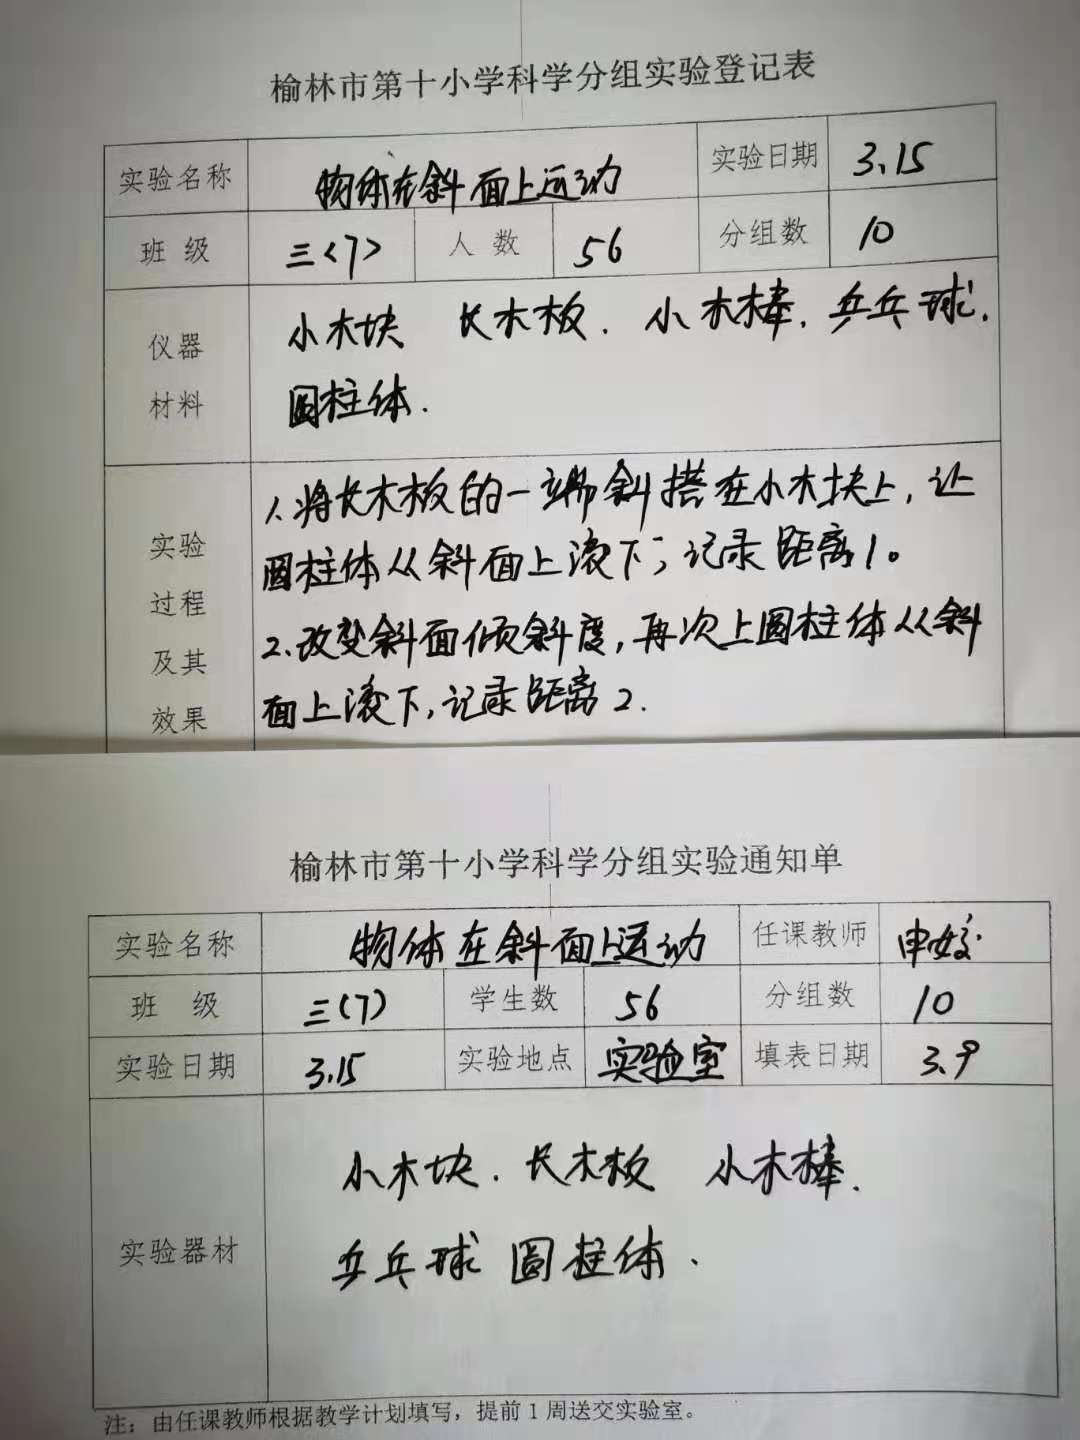 榆林市第十小学科学分组实验登记表
实验名称 物体在斜面上运动 实验日期 3.15
班 级 三<7> 人 数 56 分组数 10
仪器 小木块 长木板. 小木棒. 乒乓球.
材料 圆柱体.
1.将长木板的一端斜搭在小木块上,让
实验 圆柱体从斜面上滚下,记录距离1。
过程 2.改变斜面倾斜度,再次上圆柱体从斜
及其 面上滚下,记录距离2.
效果
榆林市第十小学科学分组实验通知单
实验名称 物体在斜面上运动 任课教师 申姣
班 级 三(7) 学生数 56 分组数 10
实验日期 3.15 实验地点 实验室 填表日期 3.9
小木块. 长木板 小木棒.
实验器材 乒乓球 圆柱体.
注：由任课教师根据教学计划填写，提前1周送交实验室。